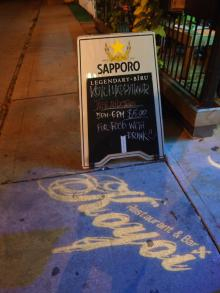 SAPPORO
LEGENDARY·BIRU
5PM-6PM $15.00
FOR FOOD WITH
DRINK!!
Koyoi
Restaurant & Bar